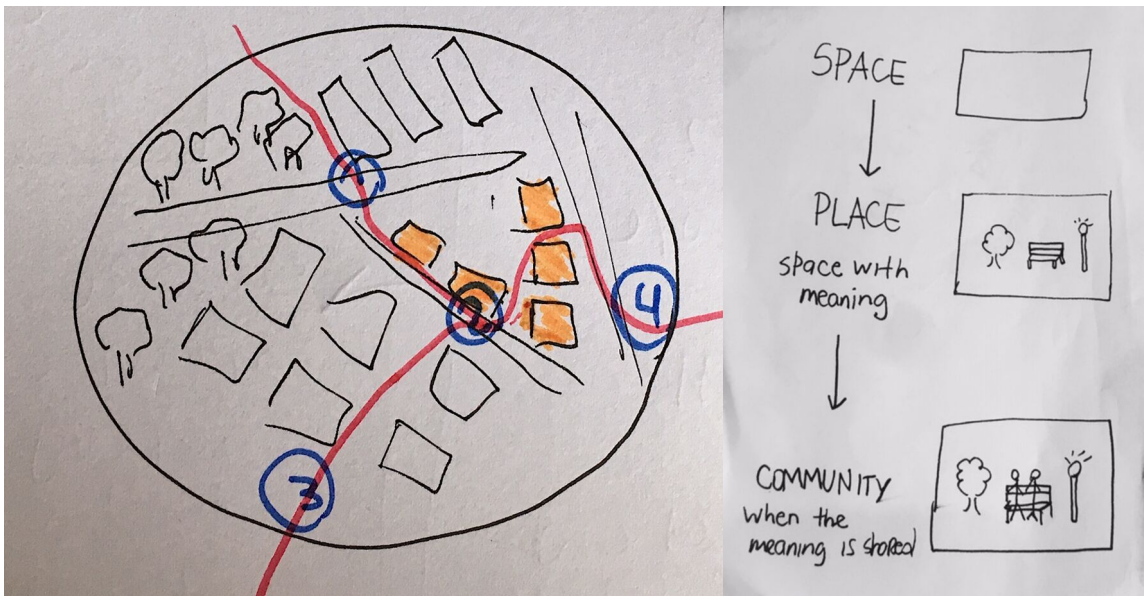 1
2
3
4
SPACE
PLACE
space with
meaning
COMMUNITY
when the
meaning is shared